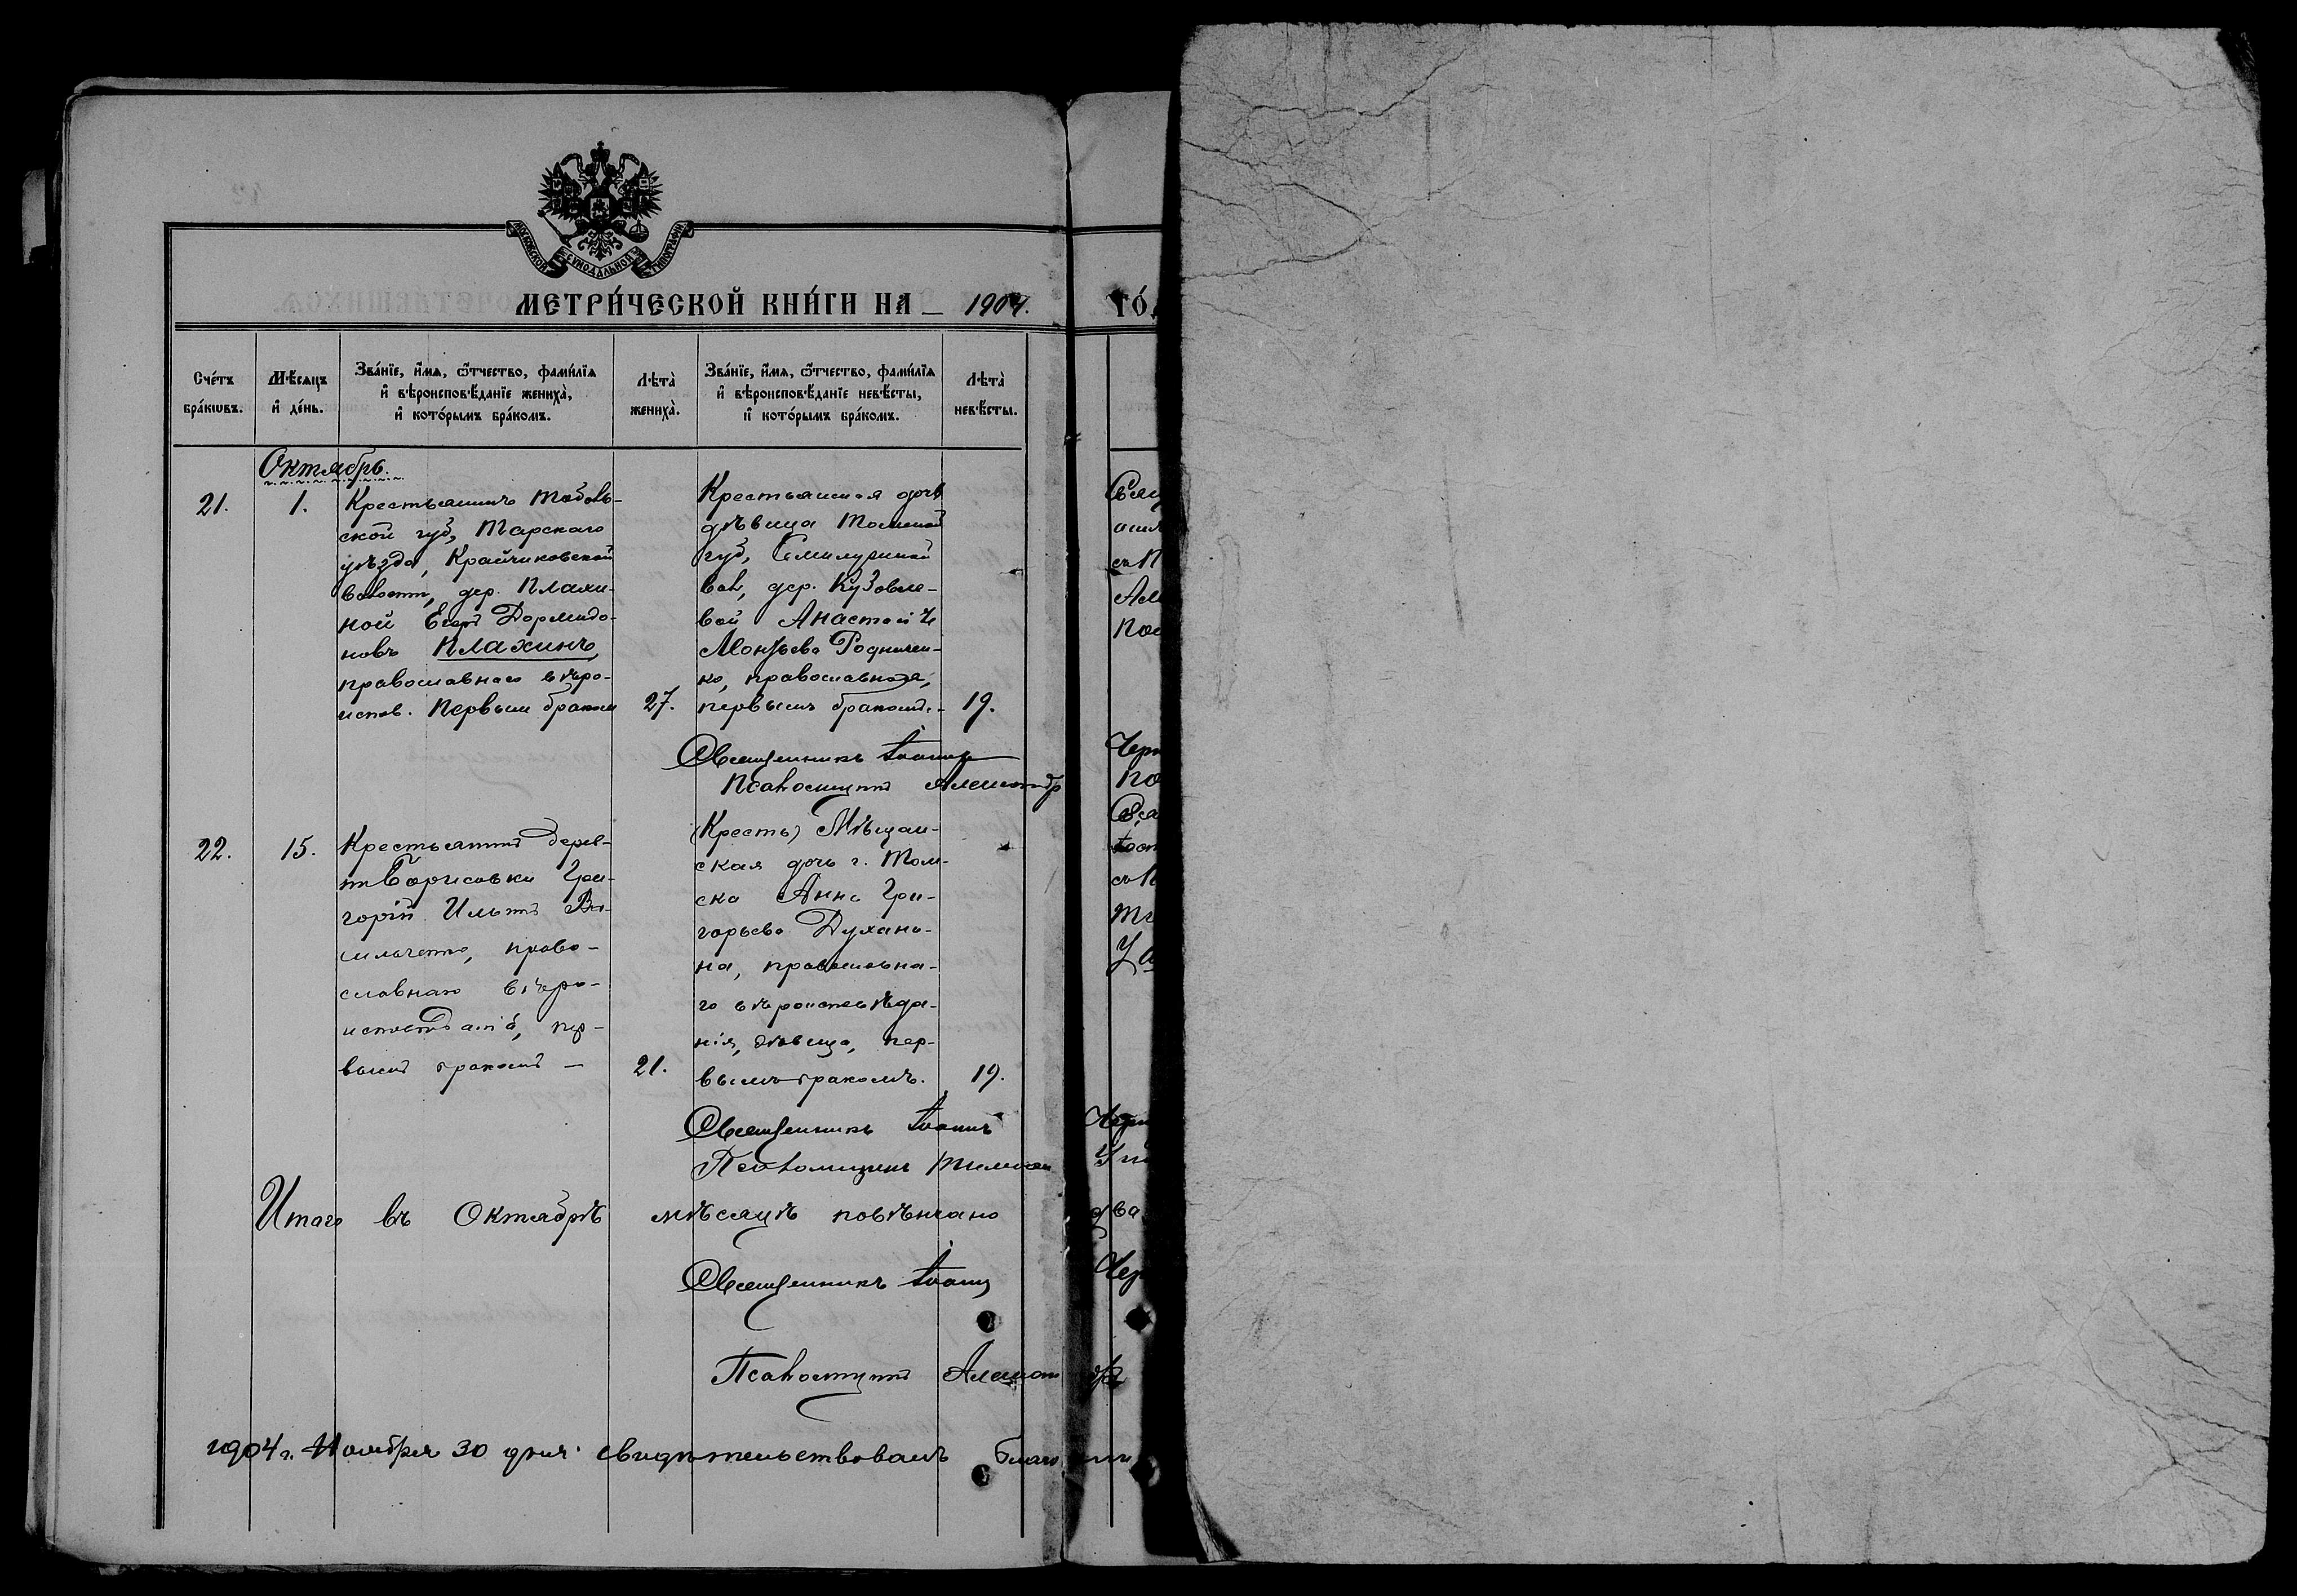 МОСКОВСКОЙ СѴНОДАЛЬНОЙ ТИПОГРАФІИ
МЕТРИ́ЧЕСКОЙ КНИ́ГИ НА 1904. ГО́Д
Сче́тъ бра́кѡвъ.
Мѣ́сяцъ и҆ де́нь.
Зва́нїе, и҆́мя, ѻ҆́тчество, фами́лїя
и҆ вѣроисповѣ́данїе жениха̀,
и҆ кото́рымъ бра́комъ.
Лѣта̀ жениха̀.
Зва́нїе, и҆́мя, ѻ҆́тчество, фами́лїя
и҆ вѣроисповѣ́данїе невѣ́сты,
и҆ кото́рымъ бра́комъ.
Лѣта̀ невѣ́сты.
Октябрь.
21.
1.
Крестьянинъ Тоболь-
ской губ, Тарскаго
уѣзда, Крайчиковской
волости, дер. Плахи-
ной Егоръ Дормидо-
новъ Плахинъ,
православнаго вѣро-
испов. первым браком
27.
Крестьянская дочь
дѣвица Томской
губ, Семилужной
вол, дер. Кузовле-
вой Анастасія
Леонтьева Родничен-
ко, православная,
первымъ бракомъ.
19.
Священникъ Іоаннъ
Псаломщикъ Александр
22.
15.
Крестьянинъ дерев-
ни Борисовки Гри-
горій Ильинъ
право-
славнаго вѣро-
исповѣданія, пер-
вымъ бракомъ —
21.
(Кресть) Мѣщан-
ская дочь г. Том-
ска Анна Гри-
горьева Духани-
на, православна-
го вѣроисповѣда-
нія, дѣвица, пер-
вымъ бракомъ.
19.
Священникъ Іоаннъ
Псаломщикъ
Итого въ Октябрѣ мѣсяцѣ повѣнчано два
Священникъ Іоаннъ Чер
Псаломщикъ Александръ
1904 г. Ноября 30 дня свидѣтельствовалъ